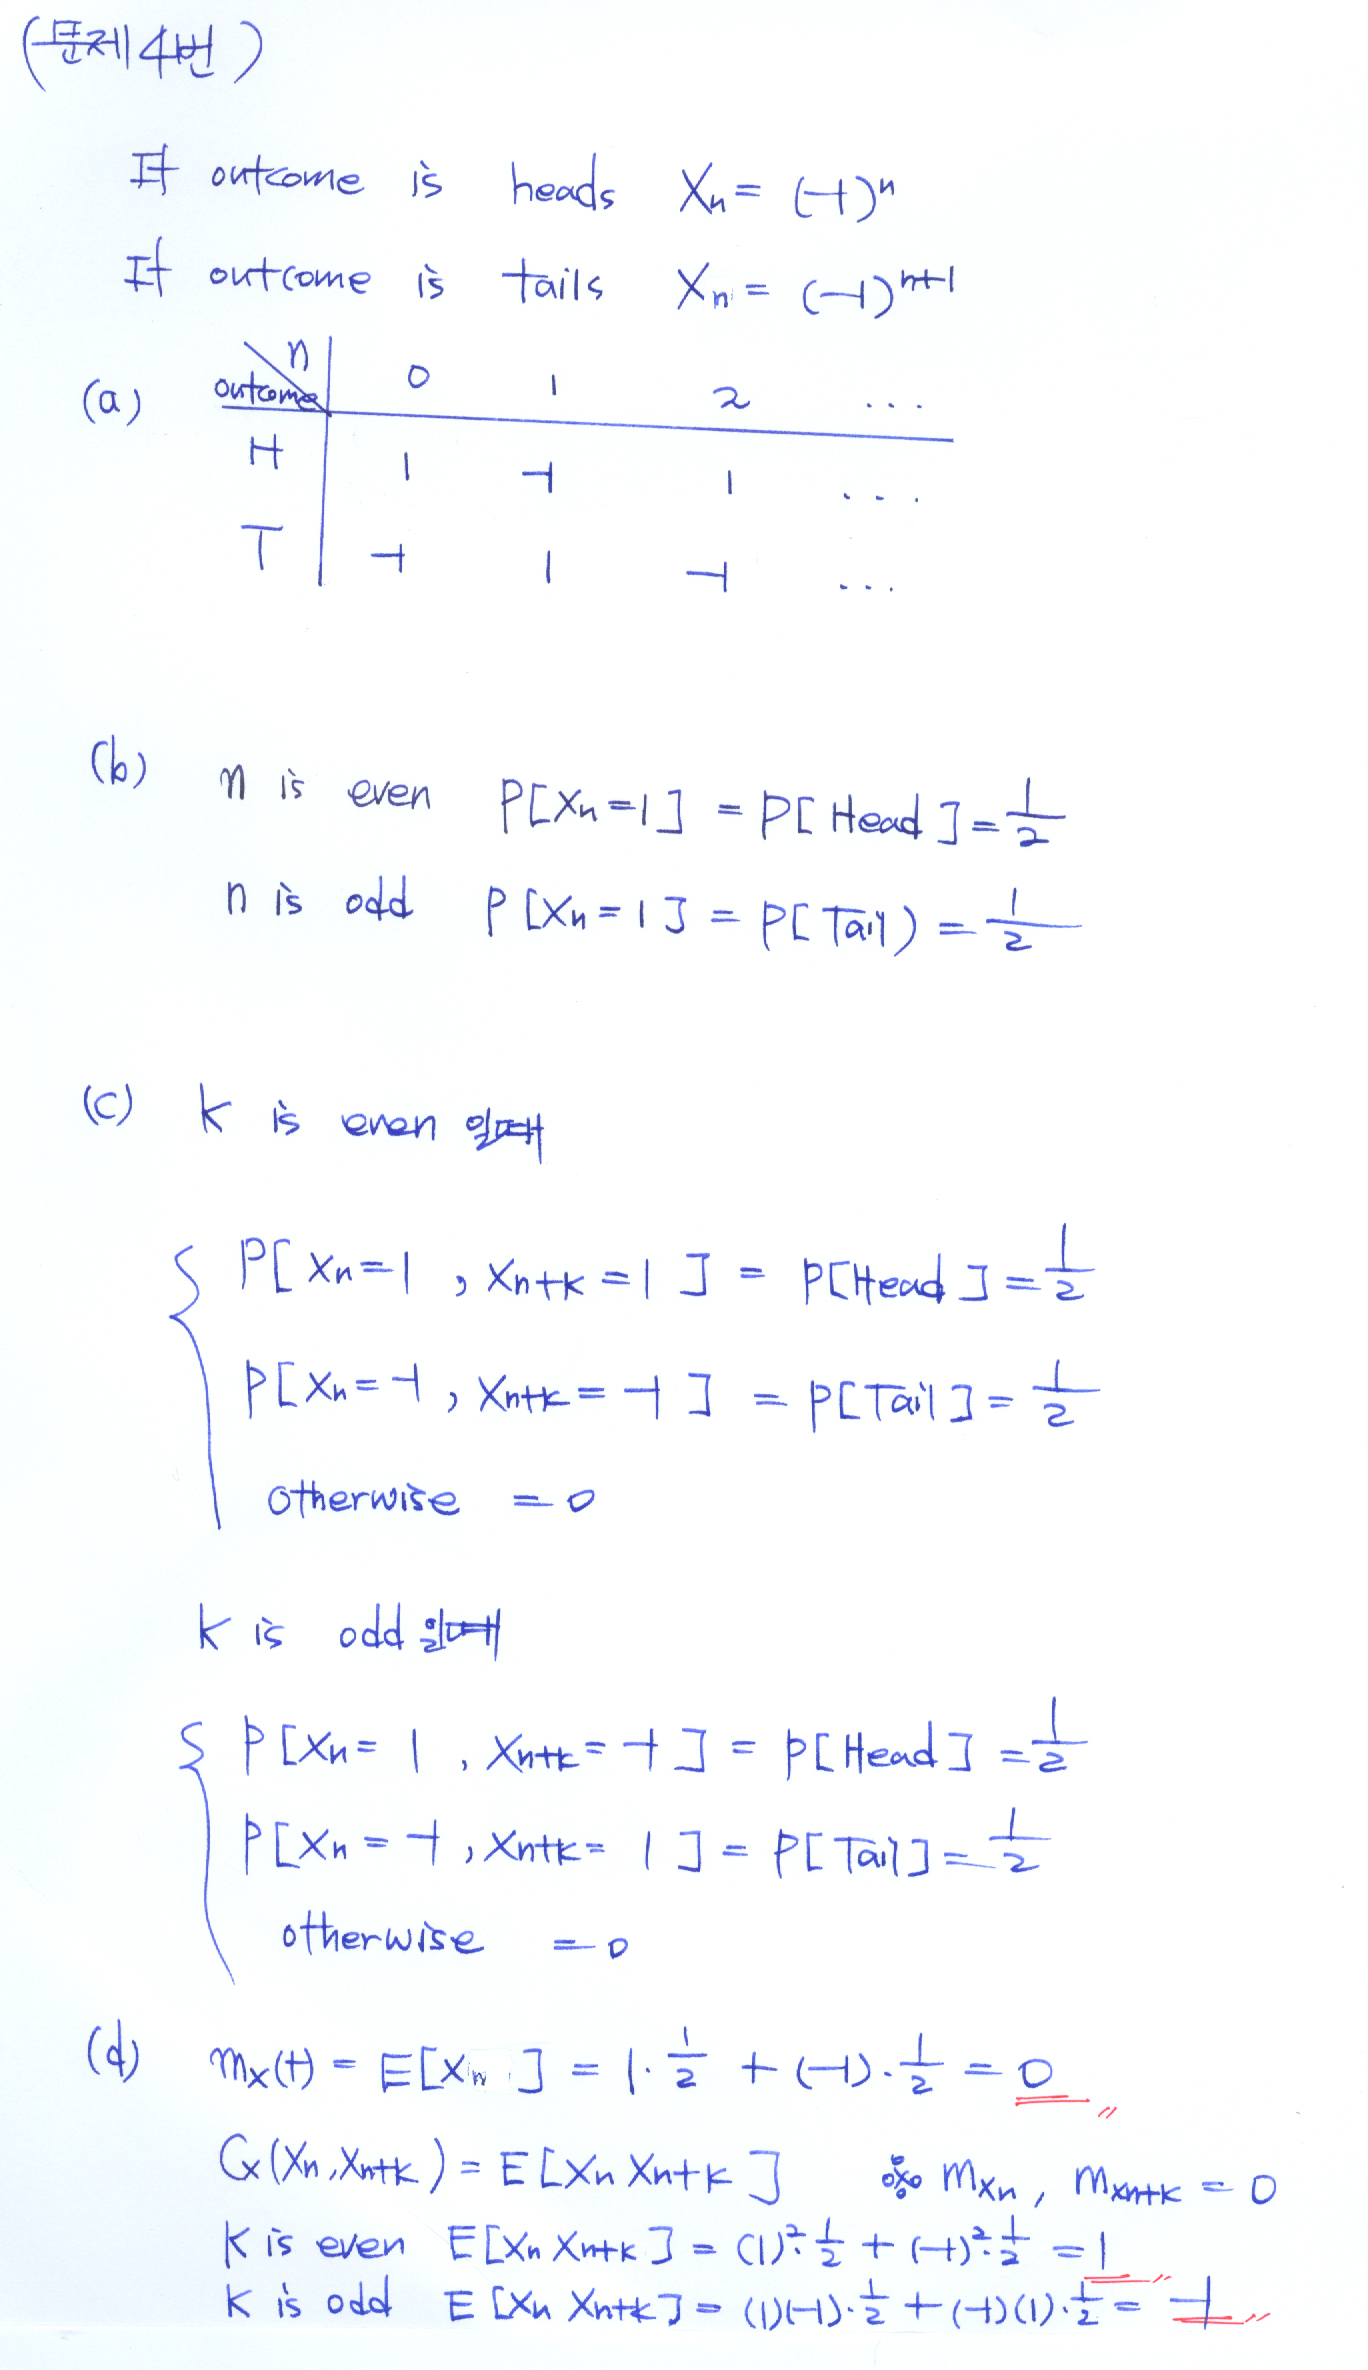 (문제4번)
If outcome is heads Xn = (-1)^n
If outcome is tails Xn = (-1)^n+1
(a)
n
outcome 0 1 2 ...
H 1 -1 1 ...
T -1 1 -1 ...
(b) n is even P[Xn=1] = P[Head] = 1/2
n is odd P[Xn=1] = P[Tail) = 1/2
(c) k is even 일때
P[Xn=1, Xn+k=1] = P[Head] = 1/2
P[Xn=-1, Xn+k=-1] = P[Tail] = 1/2
otherwise = 0
k is odd 일때
P[Xn=1, Xn+k=-1] = P[Head] = 1/2
P[Xn=-1, Xn+k=1] = P[Tail] = 1/2
otherwise = 0
(d) mx(t) = E[Xn] = 1·1/2 + (-1)·1/2 = 0
Cx(Xn, Xn+k) = E[Xn Xn+k] ※ mxn, mxn+k = 0
k is even E[Xn Xn+k] = (1)^2·1/2 + (-1)^2·1/2 = 1
k is odd E[Xn Xn+k] = (1)(-1)·1/2 + (-1)(1)·1/2 = -1